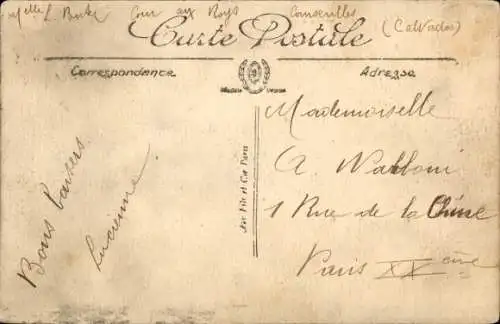 elle L. Cour aux Roys Conseilles (Calvados)
Carte Postale
Correspondance
Adresse
Bons baisers
Lucienne.
Mademoiselle
A Walloni
1 Rue de la Chine
Paris XXème